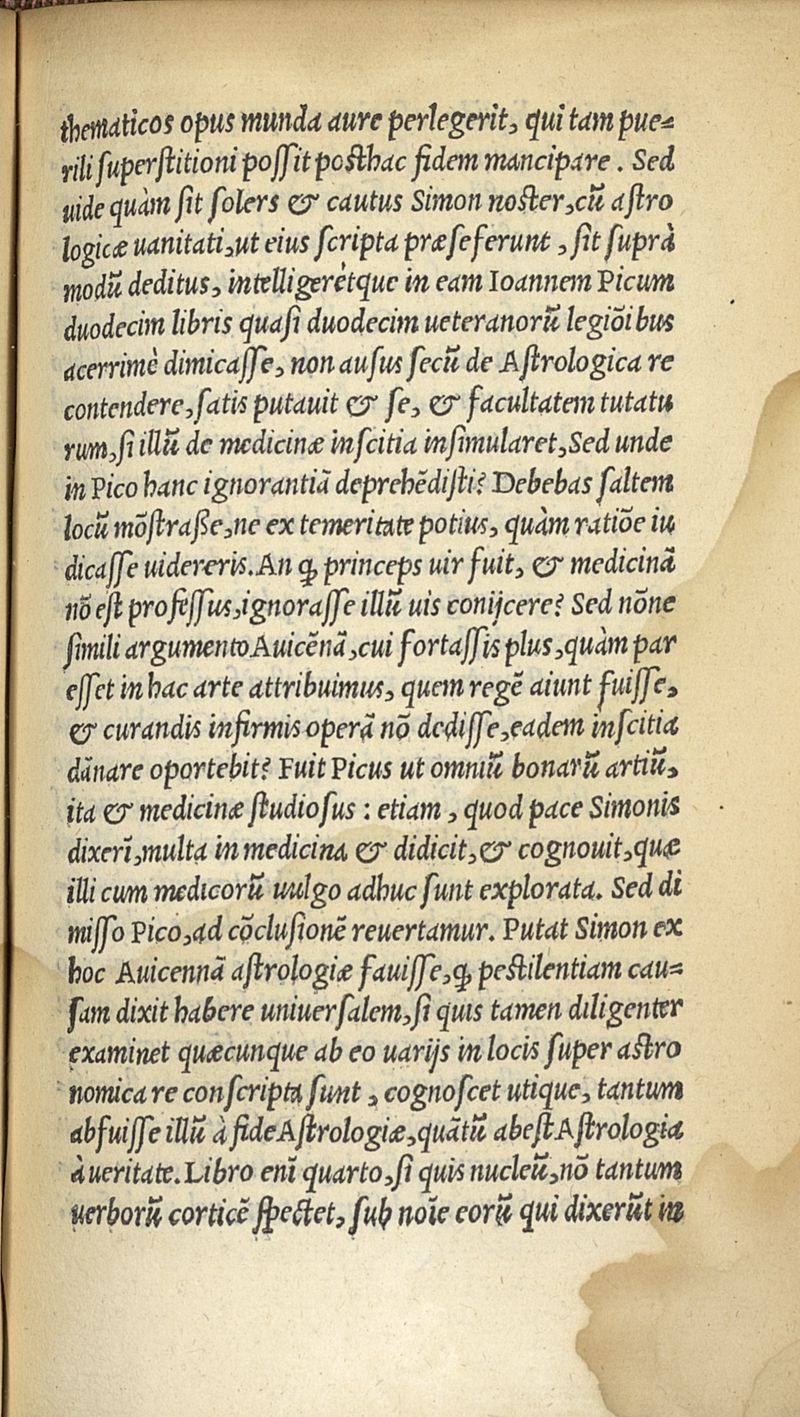 thematicos opus munda aure perlegerit, qui tam pue=
rili ſuperſtitioni poſſit poſthac fidem mancipare. Sed
uide quàm ſit ſolers & cautus Simon noſter, cũ aſtro
logicæ uanitati, ut eius ſcripta præſeferunt, ſit ſuprà
modũ deditus, intelligerétque in eam Ioannem Picum
duodecim libris quaſi duodecim ueteranorũ legiõibus
acerrimè dimicaſſe, non auſus ſecũ de Aſtrologica re
contendere, ſatis putauit & ſe, & facultatem tutatu
rum, ſi illũ de medicinæ inſcitia inſimularet, Sed unde
in Pico hanc ignorantiã deprehẽdiſti? Debebas ſaltem
locũ mõſtraße, ne ex temeritate potius, quàm ratiõe iu
dicaſſe uidereris. An ꝙ princeps uir fuit, & medicinã
nõ eſt profeſſus, ignoraſſe illũ uis conijcere? Sed nõne
ſimili argumento Auicẽnã, cui fortaſſis plus, quàm par
eſſet in hac arte attribuimus, quem regẽ aiunt fuiſſe,
& curandis infirmis operã nõ dediſſe, eadem inſcitia
dãnare oportebit? Fuit Picus ut omniũ bonarũ artiũ,
ita & medicinæ ſtudioſus: etiam, quod pace Simonis
dixerĩ, multa in medicina & didicit, & cognouit, quæ
illi cum medicorũ uulgo adhuc ſunt explorata. Sed di
miſſo Pico, ad cõcluſionẽ reuertamur. Putat Simon ex
hoc Auicennã aſtrologiæ fauiſſe, ꝙ peſtilentiam cau=
ſam dixit habere uniuerſalem, ſi quis tamen diligenter
examinet quæcunque ab eo uarijs in locis ſuper aſtro
nomica re conſcripta ſunt, cognoſcet utique, tantum
abfuiſſe illũ à fide Aſtrologiæ, quãtũ abeſt Aſtrologia
à ueritate. Libro enĩ quarto, ſi quis nucleũ, nõ tantum
uerborũ corticẽ ſpectet, ſub noĩe eorũ qui dixerũt in